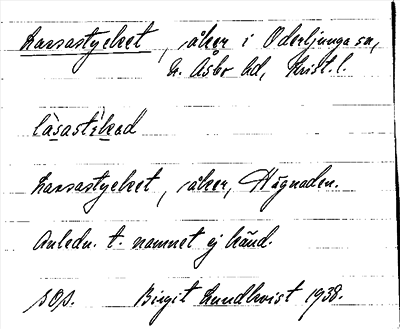 Lassastycket, åker i Oderljunga sn,
N. Åsbo hd, Krist. l.
làsastìkəd
Lassastycket, åker, Hägnaden.
Anledn. t. namnet ej känd.
sOp. Birgit Lundkvist 1938.